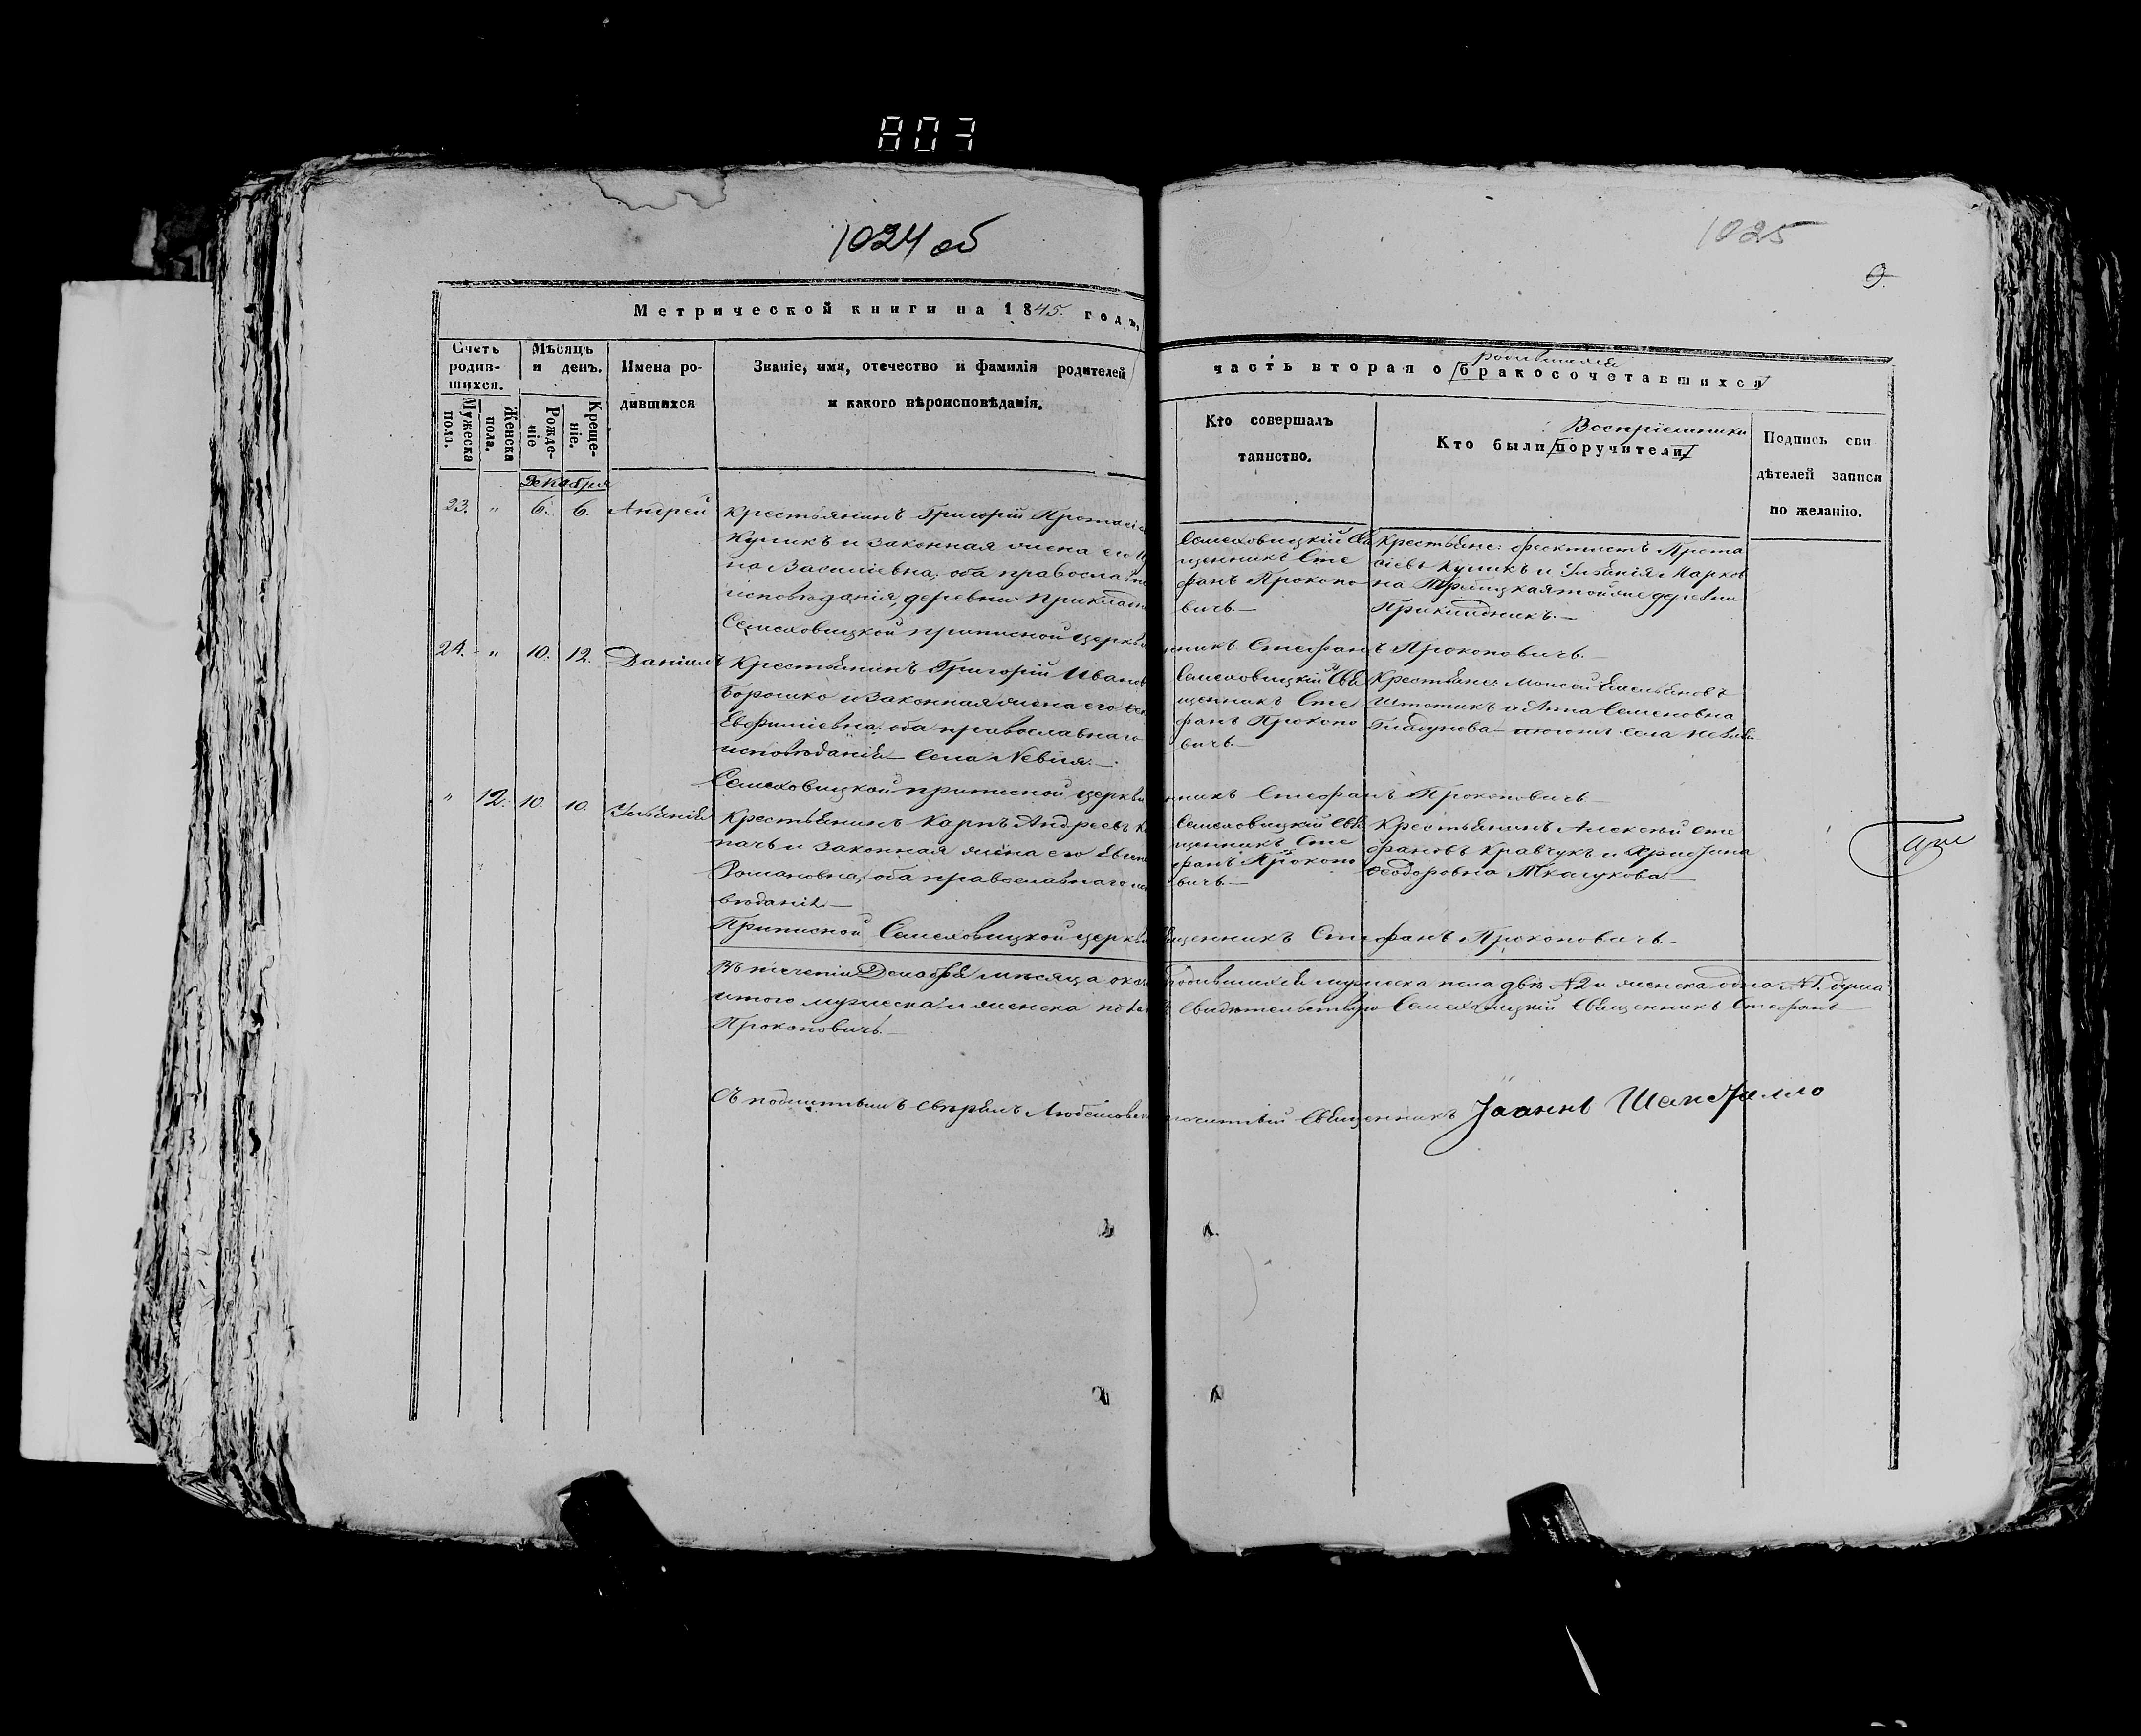 807
1024 об
1025
9.
Метрической книги на 1845. годъ,
часть вторая о бракосочетавшихся
родившихся
Счетъ родив-шихся.
Мужеска пола.
Женска пола.
Мѣсяцъ и день.
Рожде-ніе
Креще-ніе.
Имена ро-дившихся
Званіе, имя, отечество и фамилія родителей
и какого вѣроисповѣданія.
Кто совершалъ
таинство.
Воспріемники
Кто были поручители
Подпись сви
дѣтелей записи
по желанію.
Декабря
23. " 6. 6. Андрей
Крестьянинъ Григорій Протасі
Куликъ и законная жена его
на Василіевна, оба православна
исповѣданія, деревни Прикладн
Семеховицкой приписной церкви
Семеховицкій Свя
щенникъ Сте
фанъ Прокопо
вичъ.—
Крестьяне: Феоктистъ Прота
сіевъ Куликъ и Ульянія Марков
на той же деревни
Прикладникъ.—
никъ Стефанъ Прокоповичъ.—
24. " 10. 12. Даніилъ
Крестьянинъ Григорій Иванов
Борошко и законная жена его
Евфиміевна, оба православнаго
исповѣданія— Села Невля.—
Семеховицкой приписной церкви
Семеховицкій Свя
щенникъ Сте
фанъ Прокопо
вичъ.—
Крестьяне Моисей Емельяновъ
и Анна Семеновна
села
никъ Стефанъ Прокоповичъ.—
" 12. 10. 10. Ульянія
Крестьянинъ Карпъ Андреевъ К
пачъ и законная жена его Евген
Романовна, оба православнаго испо
вѣданія.—
Приписной Семеховицкой церкви
Семеховицкій Свя
щенникъ Сте
фанъ Прокопо
вичъ.—
Крестьянинъ Алексѣй Сте
фановъ Кравчукъ и Христина
Феодоровна Ткачукова.—
щенникъ Стефанъ Прокоповичъ.—
Въ теченіи Декабря мѣсяца
родившихся мужеска пола двѣ №2 и женска одна №1. душа
итого мужеска и женска пола
Свидѣтельствую Семеховицкій Священникъ Стефанъ
Прокоповичъ.—
Съ подлиннымъ свѣрялъ Любешовск
Священникъ Іоаннъ